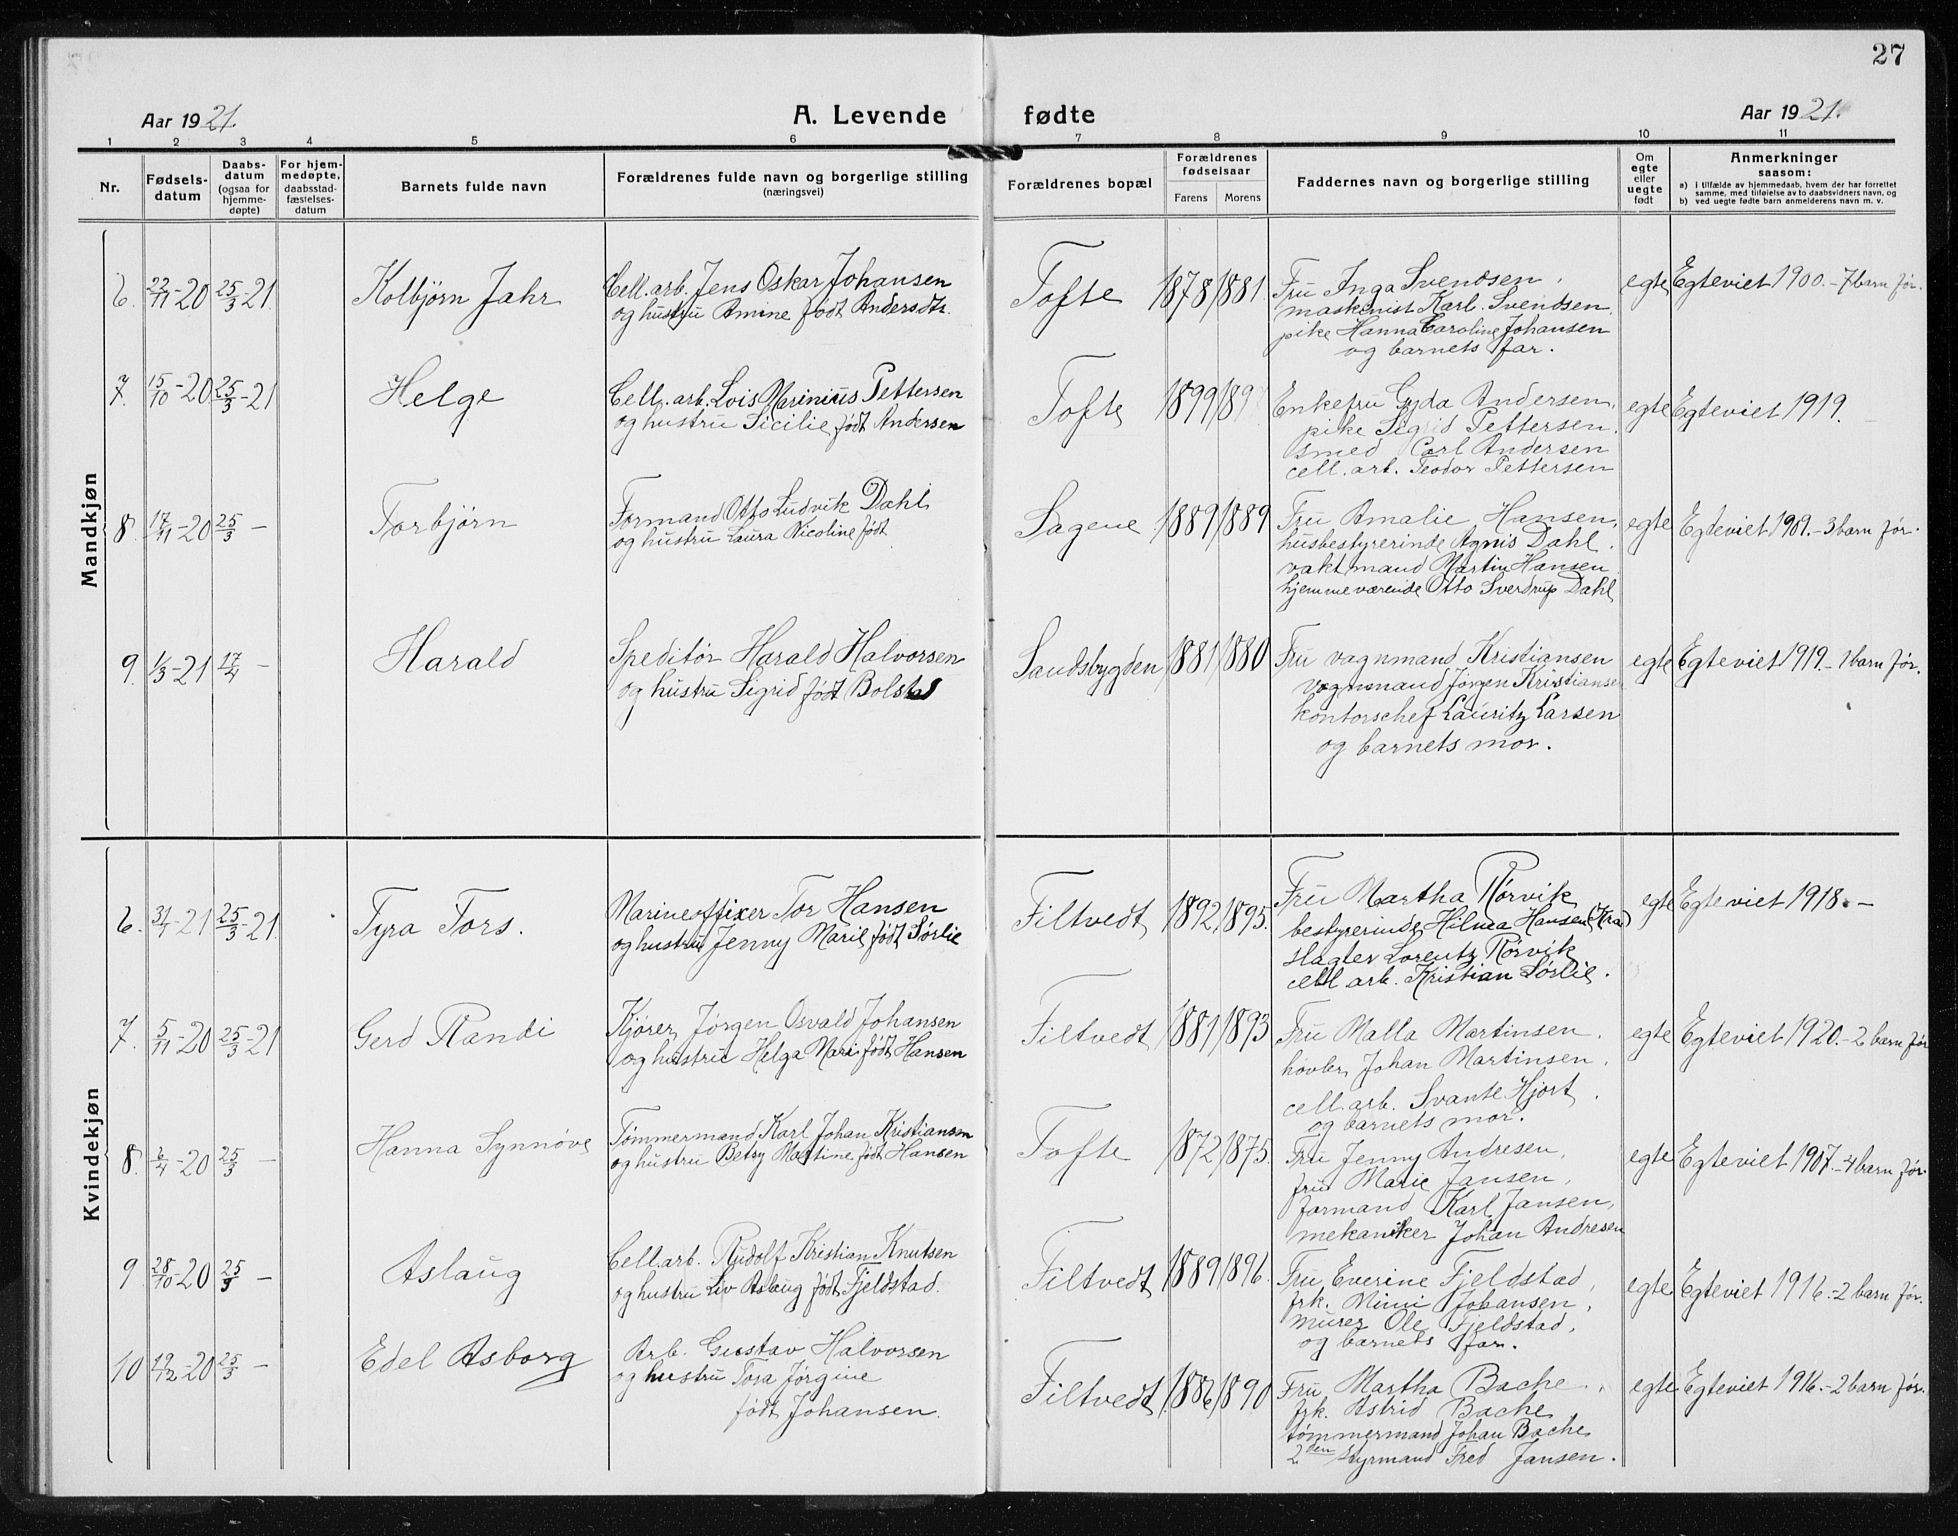 27
Aar 1921. A. Levende fødte Aar 1921.
1 2 3 4 5 6 7 8 9 10 11
Nr.
Fødsels-
datum
Daabs-
datum
(ogsaa for
hjemme-
døpte)
For hjem-
medøpte,
daabsstad-
fæstelses-
datum
Barnets fulde navn
Forældrenes fulde navn og borgerlige stilling
(næringsvei)
Forældrenes bopæl
Forældrenes
fødselsaar
Farens Morens
Faddernes navn og borgerlige stilling
Om
egte
eller
uegte
født
Anmerkninger
saasom:
a) i tilfælde av hjemmedaab, hvem der har forrettet
samme, med tilføielse av to daabsvidners navn, og
b) ved uegte fødte barn anmelderens navn m. v.
Mandkjøn
6. 22/11-20 25/3-21. Kolbjørn Jahr
Cell. arb. Jens Oskar Johansen
og hustru Amine født Andersdtr.
Tofte 1878 1881.
Fru Inga Svendsen,
maskinist Karl Svendsen,
pike Hanna Caroline Johansen
og barnets far.
egte Egteviet 1900. - 7 barn før.
7. 15/10-20 25/3-21 Helge
Cell. arb. Lois Marinius Pettersen
og hustru Sicilie født Andersen
Tofte 1899
Enkefru Gyda Andersen,
pike Sigrid Pettersen,
smed Carl Andersen
cell. arb. Teodor Pettersen
egte Egteviet 1919. -
8. 17/11-20 25/3 - Torbjørn
Formand Otto Ludvik Dahl
og hustru Laura Nicoline født
Sagene 1889 1889
Fru Amalie Hansen,
husbestyrerinde Agnis Dahl.
vaktmand Martin Hansen
hjemmeværende Otto Sverdrup Dahl
egte Egteviet 1909. - 3 barn før.
9. 1/3-21 17/4 - Harald
Speditør Harald Halvorsen
og hustru Sigrid født Bolstad
Sandsbygden 1881 1880
Fru vognmand Kristiansen
vognmand Jørgen Kristiansen
kontorschef Lauritz Larsen
og barnets mor.
egte Egteviet 1919. - 1 barn før.
Kvindekjøn
6. 31/1-21 25/3-21. Tyra Tors.
Marineoffixer Tor Hansen
og hustru Jenny Marie født Sørlie
Filtvedt 1892 1895.
Fru Martha Rørvik
bestyrerinde Hilma Hansen (Kra)
slagter Lorentz Rørvik
cell arb. Kristian Sørlie.
egte Egteviet 1918. -
7. 5/11-20 25/3-21 Gerd Randi
Kjører Jørgen Osvald Johansen
og hustru Helga Marie født Hansen
Filtvedt 1881 1893
Fru Malla Martinsen.
høvler Johan Martinsen.
cell. arb. Svante Hjort.
og barnets mor.
egte Egteviet 1920. - 2 barn før
8. 6/4-20 25/3 - Hanna Synnøve
Tømmermand Karl Johan Kristiansen
og hustru Betsy Martine født Hansen
Tofte 1872 1875.
Fru Jenny Andresen,
fru Marie Jansen,
formand Karl Jansen,
mekaniker Johan Andresen
egte Egteviet 1907. - 4 barn før.
9 28/10-20 25/3 - Aslaug
Cell. arb. Rudolf Kristian Knutsen
og hustru Liv Aslaug født Fjeldstad.
Filtvedt 1889 1896.
Fru Everine Fjeldstad,
frk. Mimi Johansen,
murer Ole Fjeldstad,
og barnets far.
egte Egteviet 1916. - 2 barn før.
10 19/12-20 25/3 - Edel Asborg
Arb. Gustav Halvorsen
og hustru Tora Jørgine
født Johansen.
Filtvedt 1886 1890
Fru Martha Bache,
frk. Astrid Bache
tømmermand Johan Bache
2den styrmand Fred Jansen.
egte Egteviet 1916. - 2 barn før.